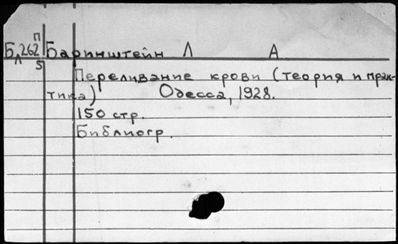 П
Бл262 Баринштейн Л А
5
Переливание крови (теория и прак-
тика) Одесса, 1928.
150 стр.
Библиогр.